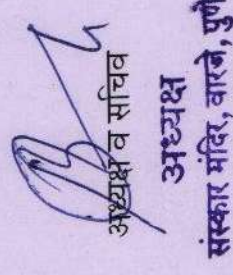 अध्यक्ष व सचिव
अध्यक्ष
संस्कार मंदिर, वारजे, पुणे